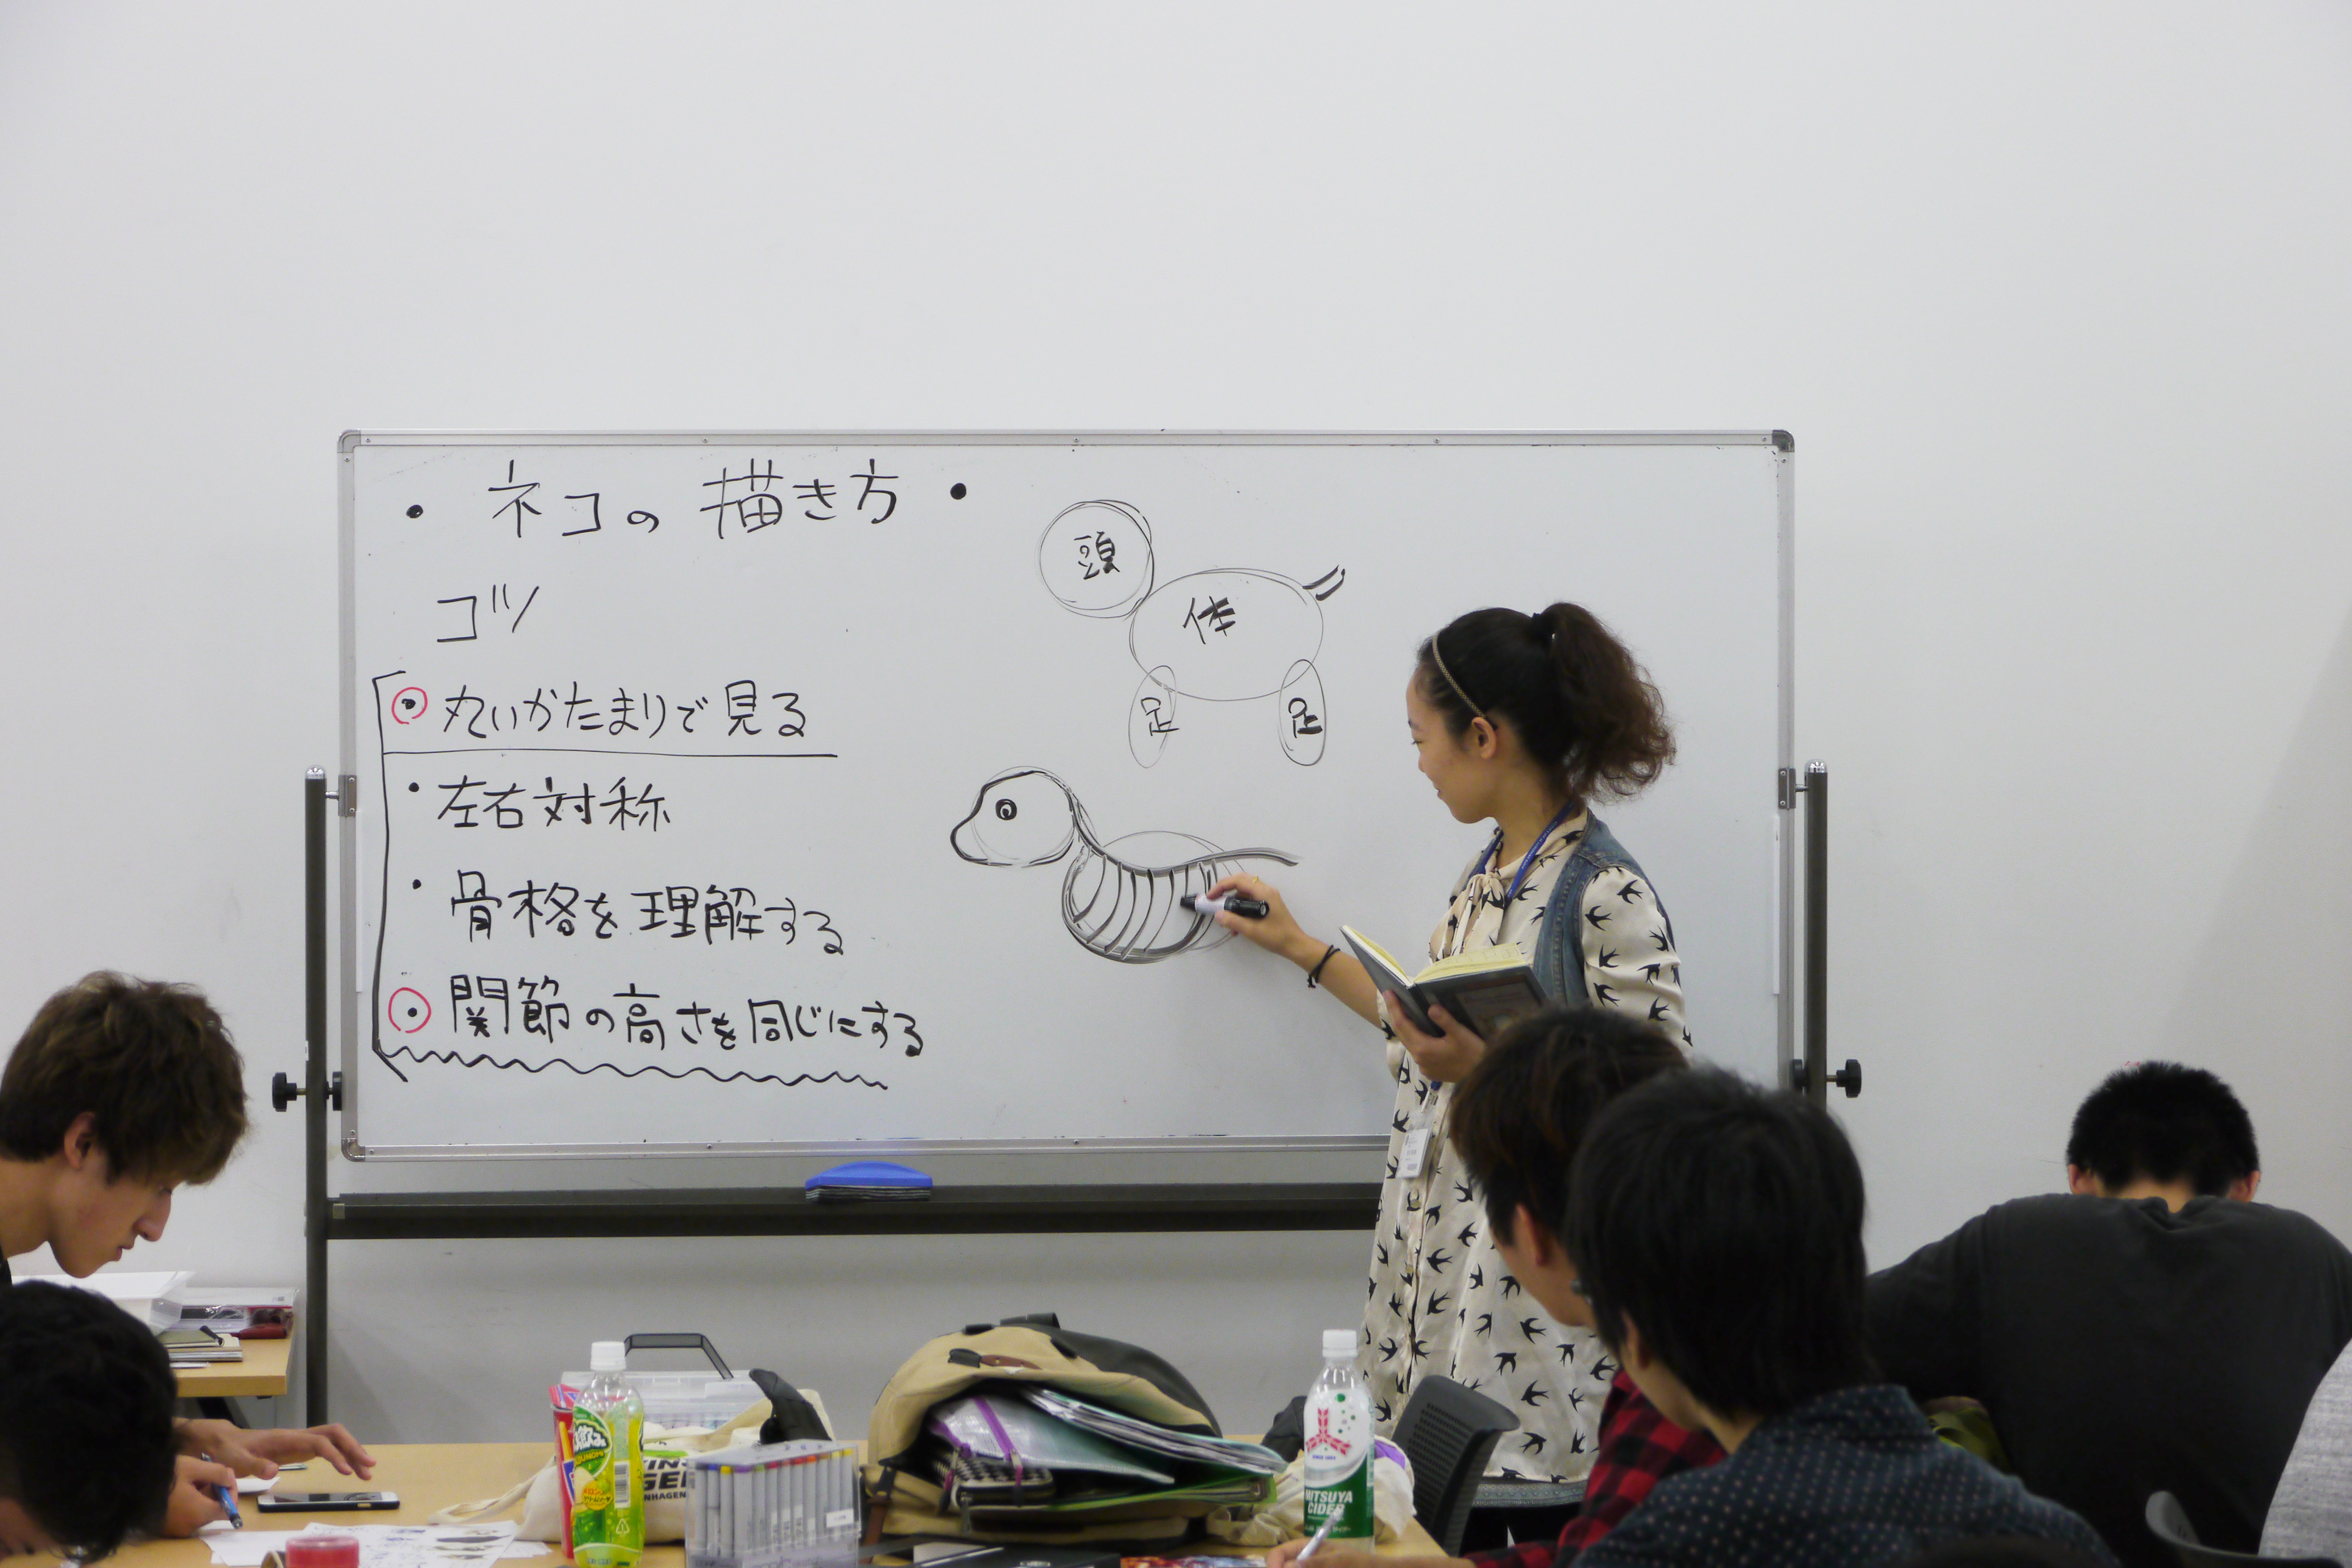 ・ネコの描き方・
コツ
丸いかたまりで見る
・左右対称
・骨格を理解する
・関節の高さを同じにする
頭
体
足 足
MITSUYA
CIDER